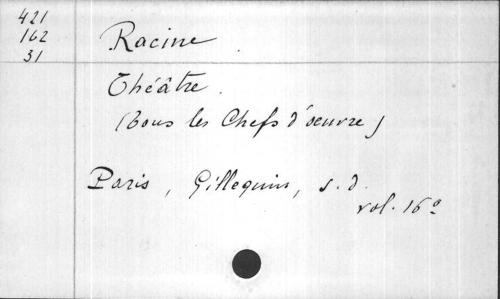 421
162
31
Racine
Théâtre.
(Tous les Chefs d'oeuvre)
Paris, Gillequin, s.d.
vol. 16°